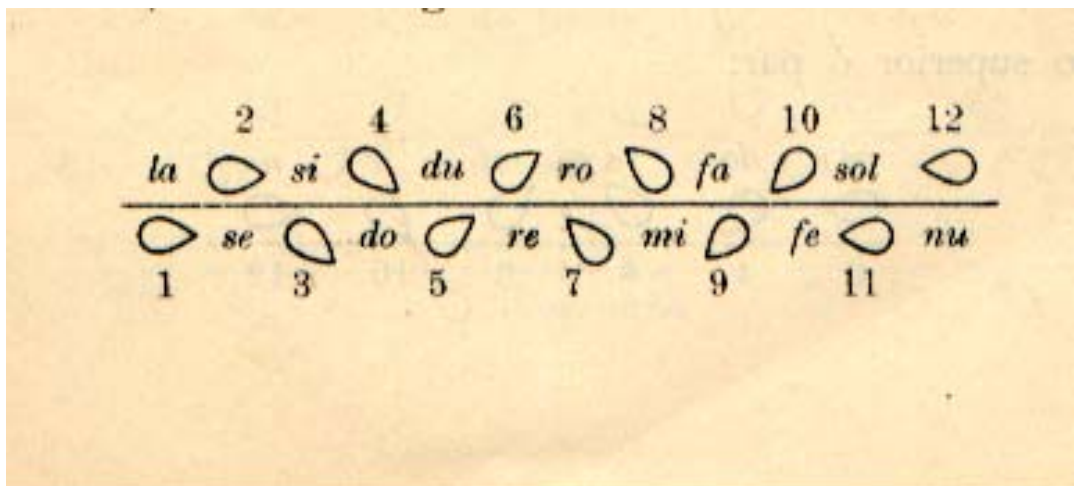 2 4 6 8 10 12
la si du ro fa sol
se do re mi fe nu
1 3 5 7 9 11